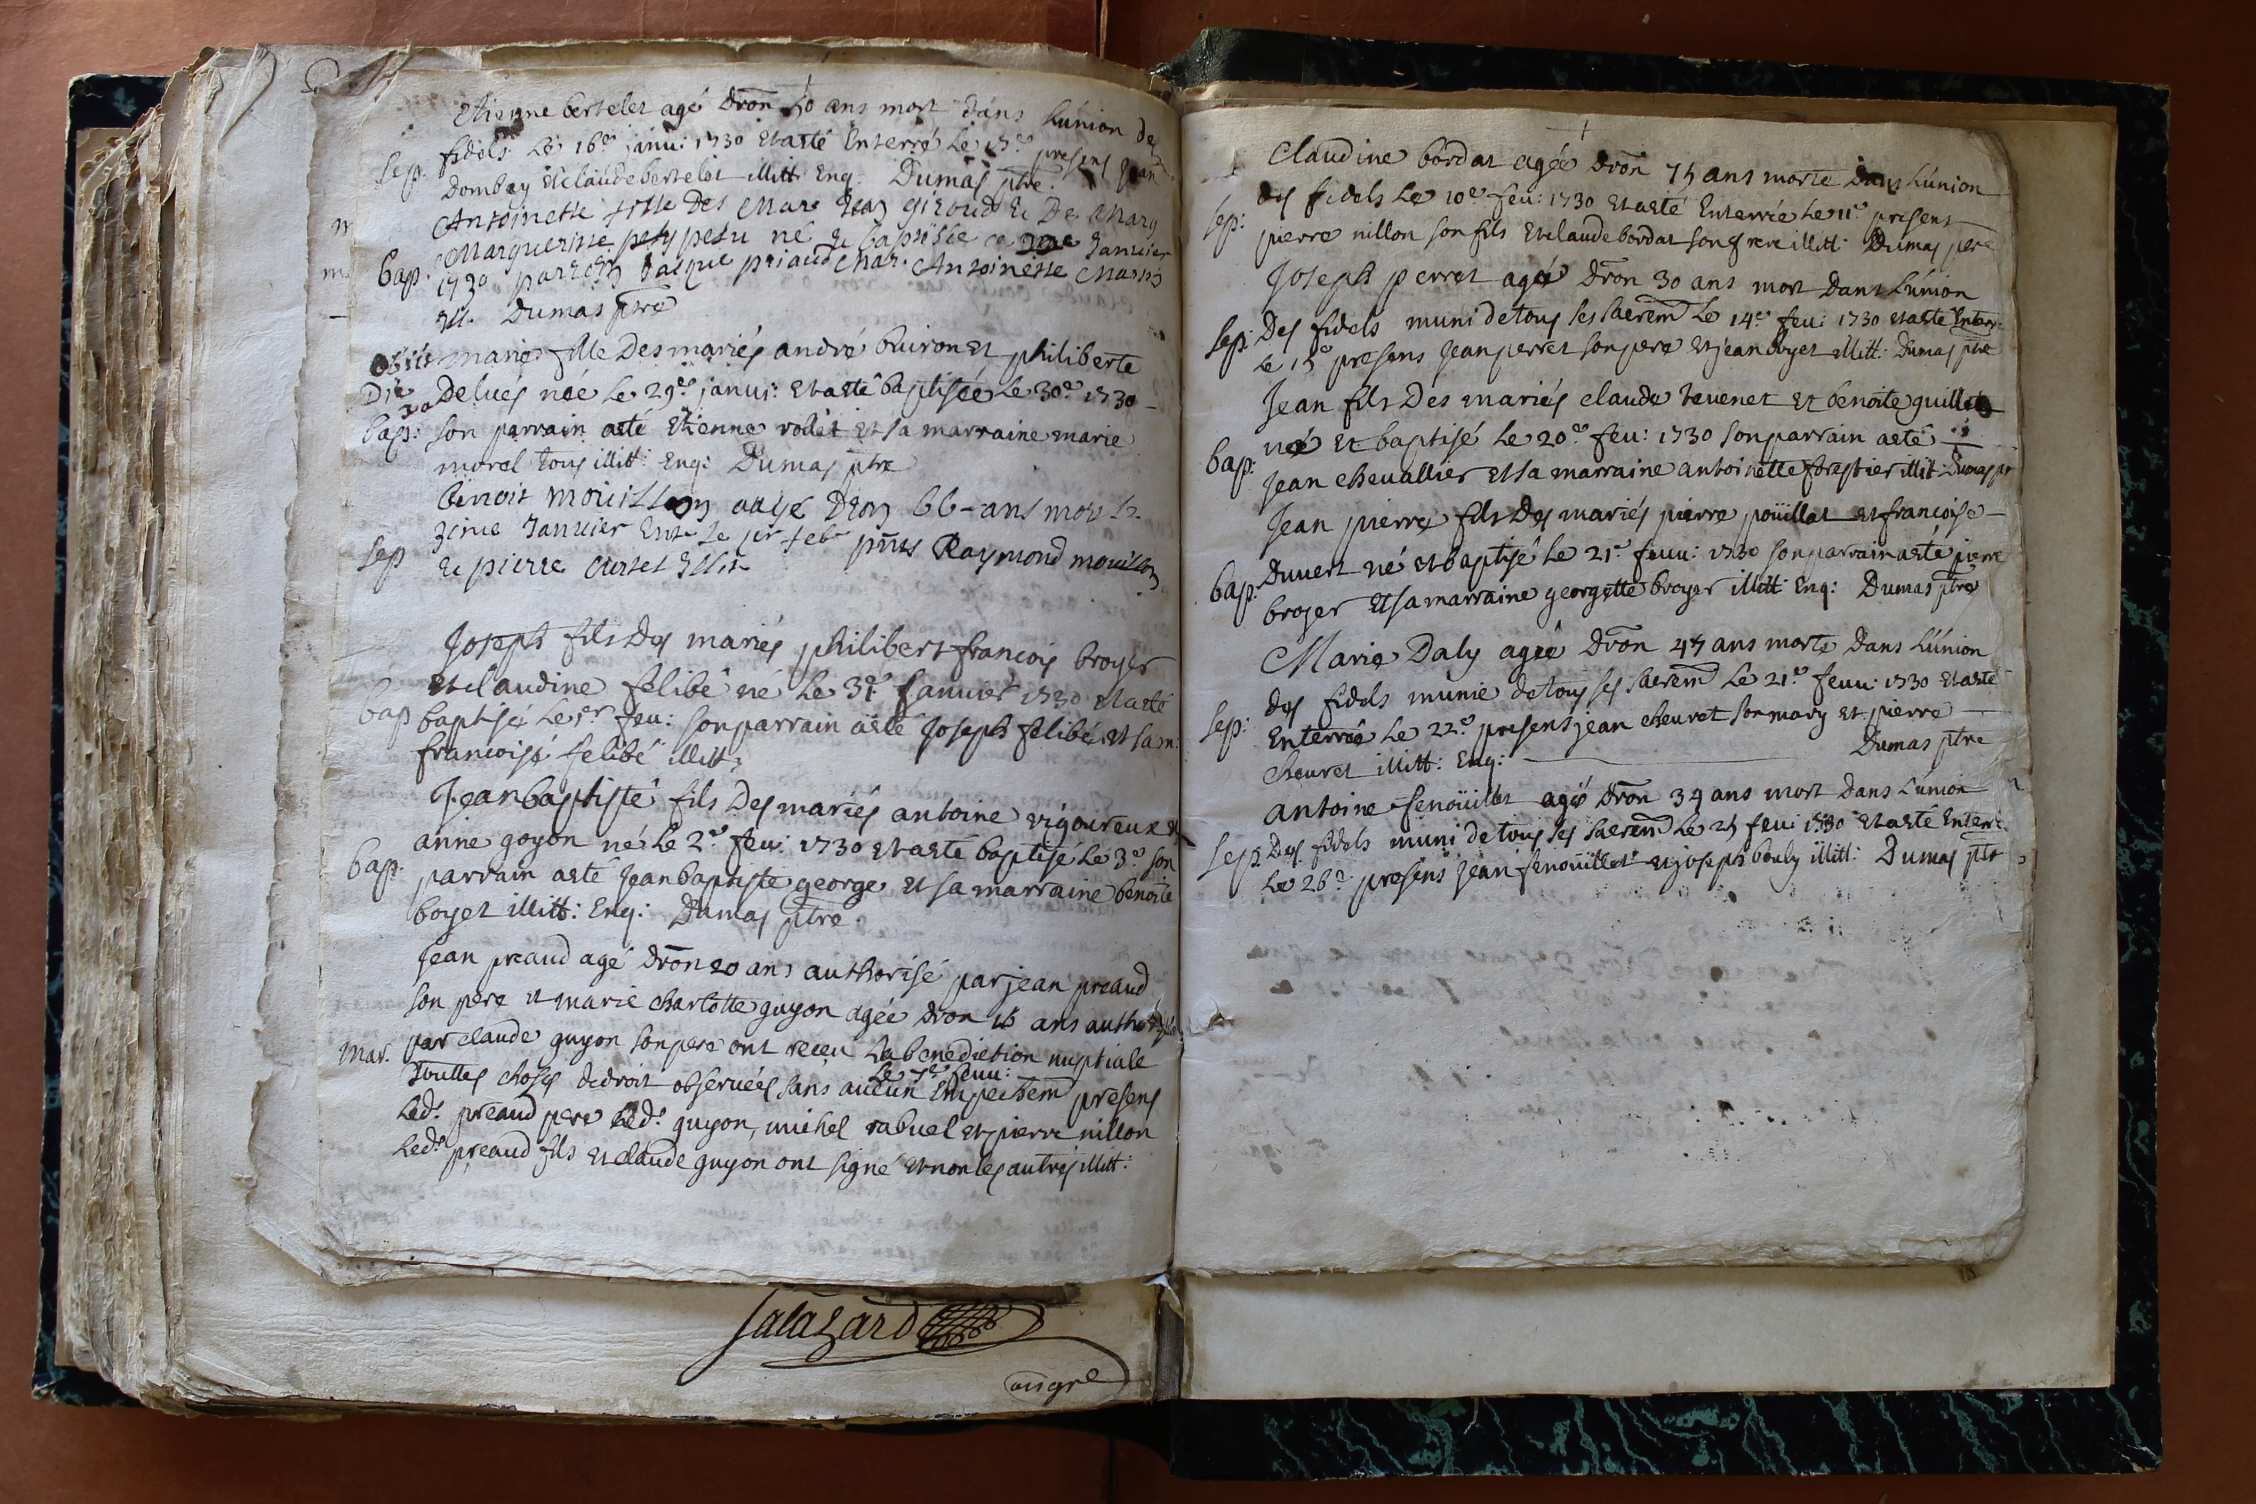 Etienne bertelet agé dron 50 ans mort dans L'union des
Sep. fidels Le 16e janu: 1730 et a eté Enterré Le 17e presens jean
Dombey et claude bertelet illitt: Enq: Dumas ptre.
Antoinette fille Des Mare Jean giroud & De Mary
Margueritte né & baptisée ce Janvier
bap. 1730 parrein Jaique priaud Mar. Antoinette
Ill. Dumas ptre
obiit marie fille Des mariés andré buiron et philiberte
Die Delues née Le 29e janvi: et a eté baptisée Le 30e 1730
30
bap: son parrain a eté Etienne rollet et sa marraine marie
morel tous illitt: Enq: Dumas ptre
benoit mouillon Dron 66 - ans mort
Janvier Ente Le pr feb pnts Raymond mouillon
sep & pierre curtet Illit
Joseph fils Des mariés philibert francois broyer
et claudine felibé né Le 31e Janvier 1730 et a eté
bap baptisé Le 1er feu: son parrain a eté Joseph felibé et sa m:
francoise felibé illitt:
Jean baptiste fils Des mariés antoine vigoureux et
anne goyon né Le 2e feu: 1730 et a eté baptisé Le 3e son
bap: parrain a eté Jean baptiste george et sa marraine benoite
boyet illitt: Enq: Dumas ptre
Jean preaud agé dron 20 ans authorisé par jean preaud
son pere et marie charlotte guyon agée dron 16 ans authorisée
mar. par claude guyon son pere ont receu La benediction nuptiale
Le 7e feuu:
Touttes choses de droit observées sans aucun Empechem presens
Led: preaud pere Led: guyon, michel rabuel et pierre nillon
Led: preaud fils et claude guyon ont signé et non les autres illitt:
Salazard
Claudine bordat agée dron 75 ans morte dans L'union
Sep: des fidels Le 10e feu: 1730 et a eté Enterrée Le 11e presens
pierre nillon son fils et claude bordat son frere illitt: Dumas ptre
Joseph perret agé dron 30 ans mort dans L'union
Sep: Des fidels muni de tous ses sacrem Le 14e feu: 1730 et a eté Enterré
Le 15e presens Jean perret son pere et jean boyet illitt: Dumas ptre
Jean fils Des mariés claude tevenet et benoite
né et baptisé Le 20e feu: 1730 son parrain a eté
bap: Jean chevallier et sa marraine antoinette forestier illit: Dumas pr
Jean pierre fils Des mariés pierre poüillat et francoise
bap: Duvert né et baptisé Le 21e feuu: 1730 son parrain a eté pierre
broyer et sa marraine georgette broyer illitt: Enq: Dumas ptre
Marie Daly agée dron 45 ans morte dans L'union
des fidels munie de tous ses sacrem Le 21e feuu: 1730 et a eté
Sep: Enterrée Le 22e presens jean cheuret son mary et pierre
cheuret illitt: Enq: Dumas ptre
antoine fenoüillet agé dron 34 ans mort dans L'union
Sep: Des fidels muni de tous ses sacrem Le 25 feu: 1730 et a eté Enterré
Le 26e presens jean fenoüillet et joseph bouly illitt: Dumas ptr